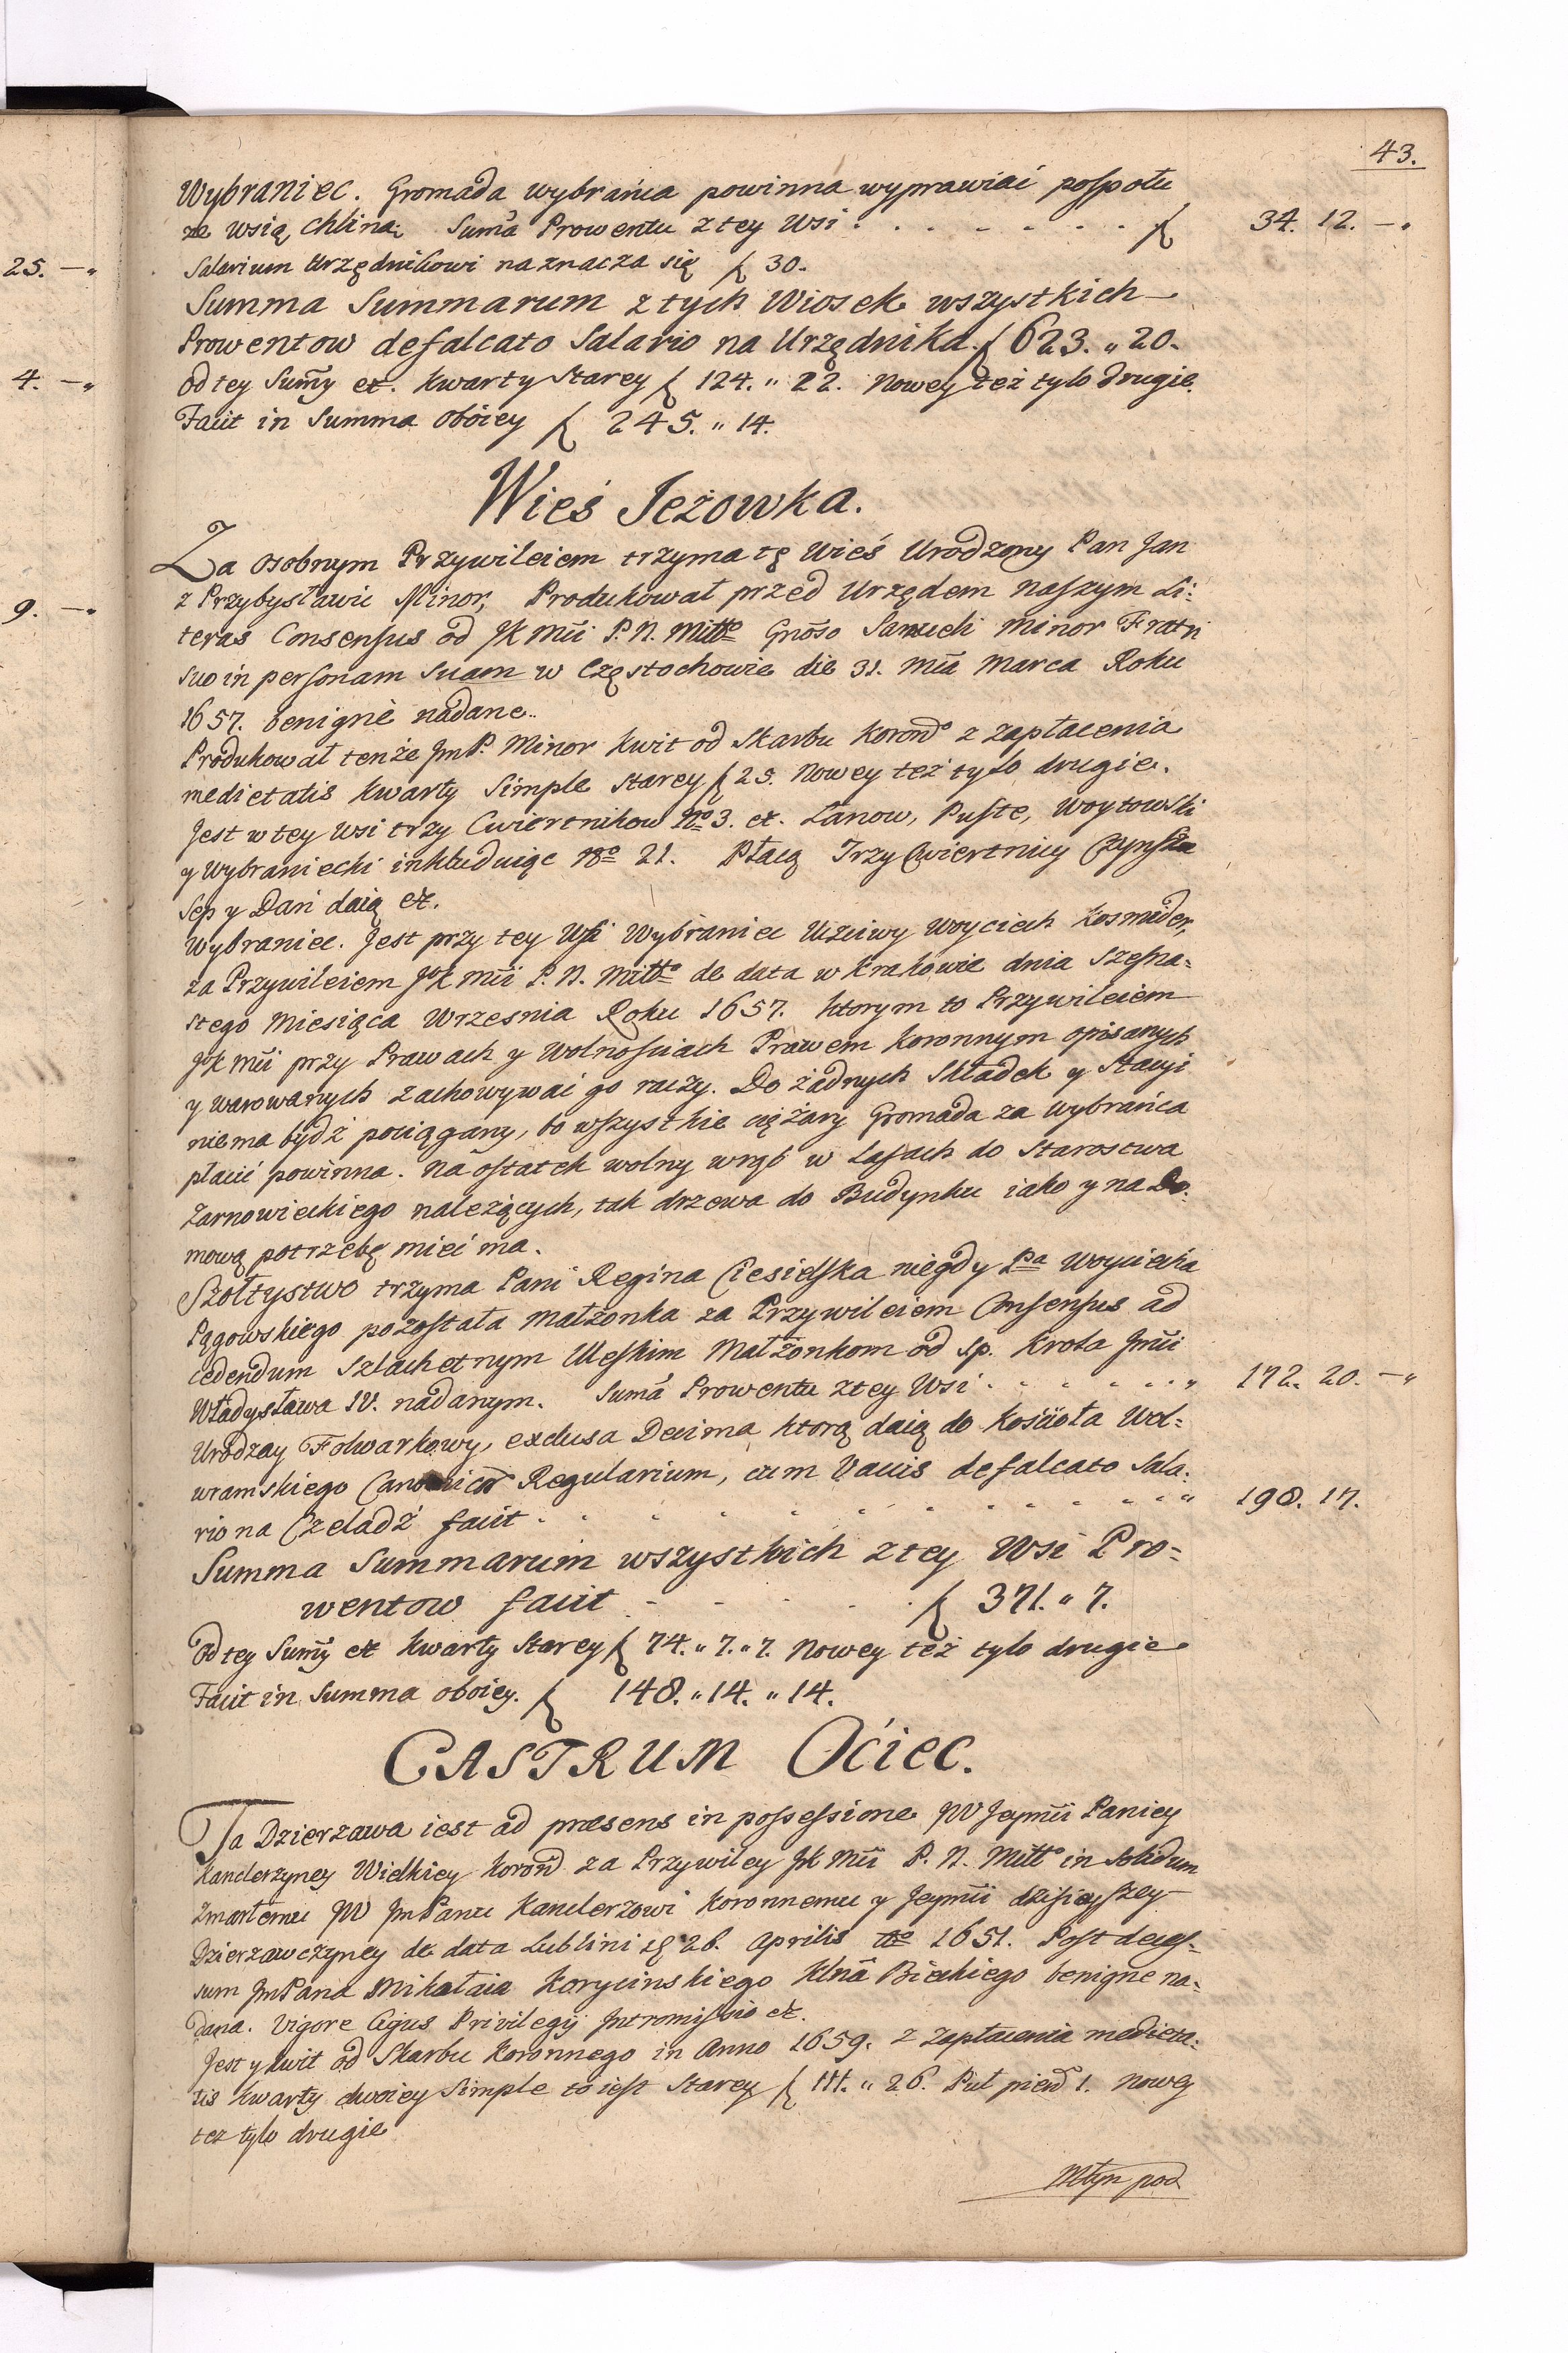 43.
Wybraniec. Gromada wybrańca powinna wyprawiać pospołu
ze wsią Chliną. Sumā Prowentu z tey Wsi . . . . . . . ƒ 34. 12. —„
25. —„
Salarium Urzędnikowi naznacza się ƒ 30.
Summa Summarum z tych Wiosek wszystkich —
Prowentow defalcato Salario na Urzędnika. ƒ 623. „ 20.
4. —„
od tey Sum̄y et. Kwarty Starey ƒ 124. „ 22. Nowey też tylo drugie.
Facit in Summa oboiey ƒ 245. „ 14.
Wieś Jeżowka.
Za osobnym Przywileiem trzyma tę Wieś Urodzony Pan Jan
9. —„
z Przybysławic Minor, Produkował przed Urzędem naszym Li:
teras Consensus od JK Mći P. N. Miłłº Gnōso Samueli Minor Fratri
suo in personam suam w Częstochowie die 31. Mća Marca Roku
1657. benignè nadane.
Produkował tenże JmP. Minor Kwit od Skarbu Koronº z zapłacenia
medietatis Kwarty Simple Starey ƒ 25. Nowey też tylo drugie.
Jest w tey Wsi trzy Cwiertnikow Nº 3. et. Łanow, Puste, Woytowski
y Wybraniecki inkluduiąc Nº 21. Płacą Trzy Cwiertnicy Czynsze
Sep y Dań daią et.
Wybraniec. Jest przy tey Wsi Wybraniec Uczciwy Woyciech Kosmider,
za Przywileiem JK Mći P. N. Miłłº de data w Krakowie dnia Szesna:
stego Miesiąca Wrzesnia Roku 1657. ktorym to Przywileiem
JK Mći przy Prawach y Wolnościach Prawem Koronnym opisanych
y warowanych zachowywać go raczy. Do żadnych Składek y Stacyi
niema bydź pociągany, bo wszystkie ciężary Gromada za wybrańca
płacić powinna. Na ostatek wolny wrąb w Lasach do Starostwa
Zarnowieckiego należących, tak drzewa do Budynku iako y na Do:
mową potrzebę mieć ma.
Szołtystwo trzyma Pani Regina Ciesielska niegdy Pa Woyciecha
Pągowskiego pozostała Małżonka za Przywileiem Consensus ad
cedendum Szlachetnym Uleskim Małżonkom od Sp. Krola Jmći
Władysława IV. nadanym. Sumā Prowentu z tey Wsi . . . . . . . „ 172. 20. —„
Urodzay Folwarkowy, exclusa Decima ktorą daią do Kościoła Wol:
wramskiego Canonicor Regularium, cum Vaciis defalcato Sala:
rio na Czeladź facit . . . . . . . . . . . . „ 198. 17.
Summa Summarum wszystkich z tey Wsi Pro:
wentow facit . . . . . ƒ 371. „ 7.
od tey Sum̄y et Kwarty Starey ƒ 74. „ 7. „ 7. Nowey też tylo drugie
Facit in Summa oboiey. ƒ 148. „ 14. „ 14.
CASTRUM Oćiec.
Ta Dzierzawa iest ad præsens in possessione JW Jeymći Paniey
Kanclerzyney Wielkiey Koron̄ za Przywiley JK Mći P. N. Miłłº in solidum
Zmarłemu JW JmPanu Kanclerzowi Koronnemu y Jeymći dzisieyszey
Dzierzawczyney de data Lublini 26. Aprilis 1651. Post deces:
sum JmPana Mikołaia Korycinskiego Kln̄a Bieckiego benigne na:
dana. Vigore Cujus Privilegij Intromissio et.
Jest y kwit od Skarbu Koronnego in Anno 1659. z Zapłacenia medieta:
tis Kwarty dwoiey Simple to iest Starey ƒ 111. „ 26. Puł pien̄ 1. Nowey
tez tylo drugie
Młyn pod